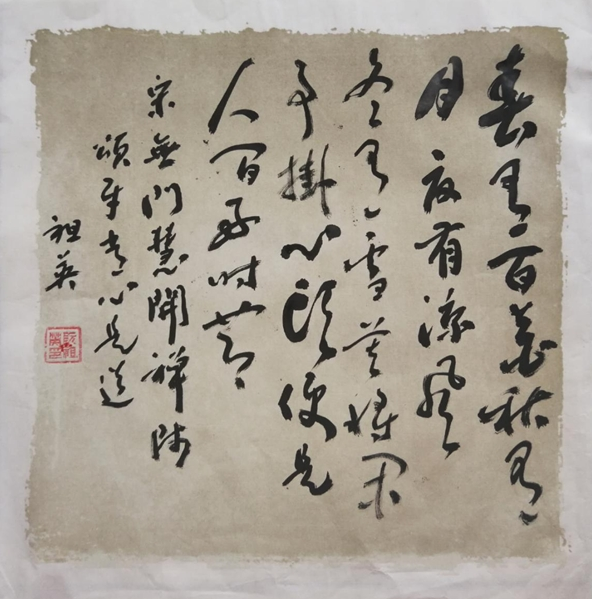 春有百花秋有
月夏有涼風
冬有雪莫將閑
事掛心頭便是
人間好時節
宋無門慧開禪師
頌平常心是道
祖英